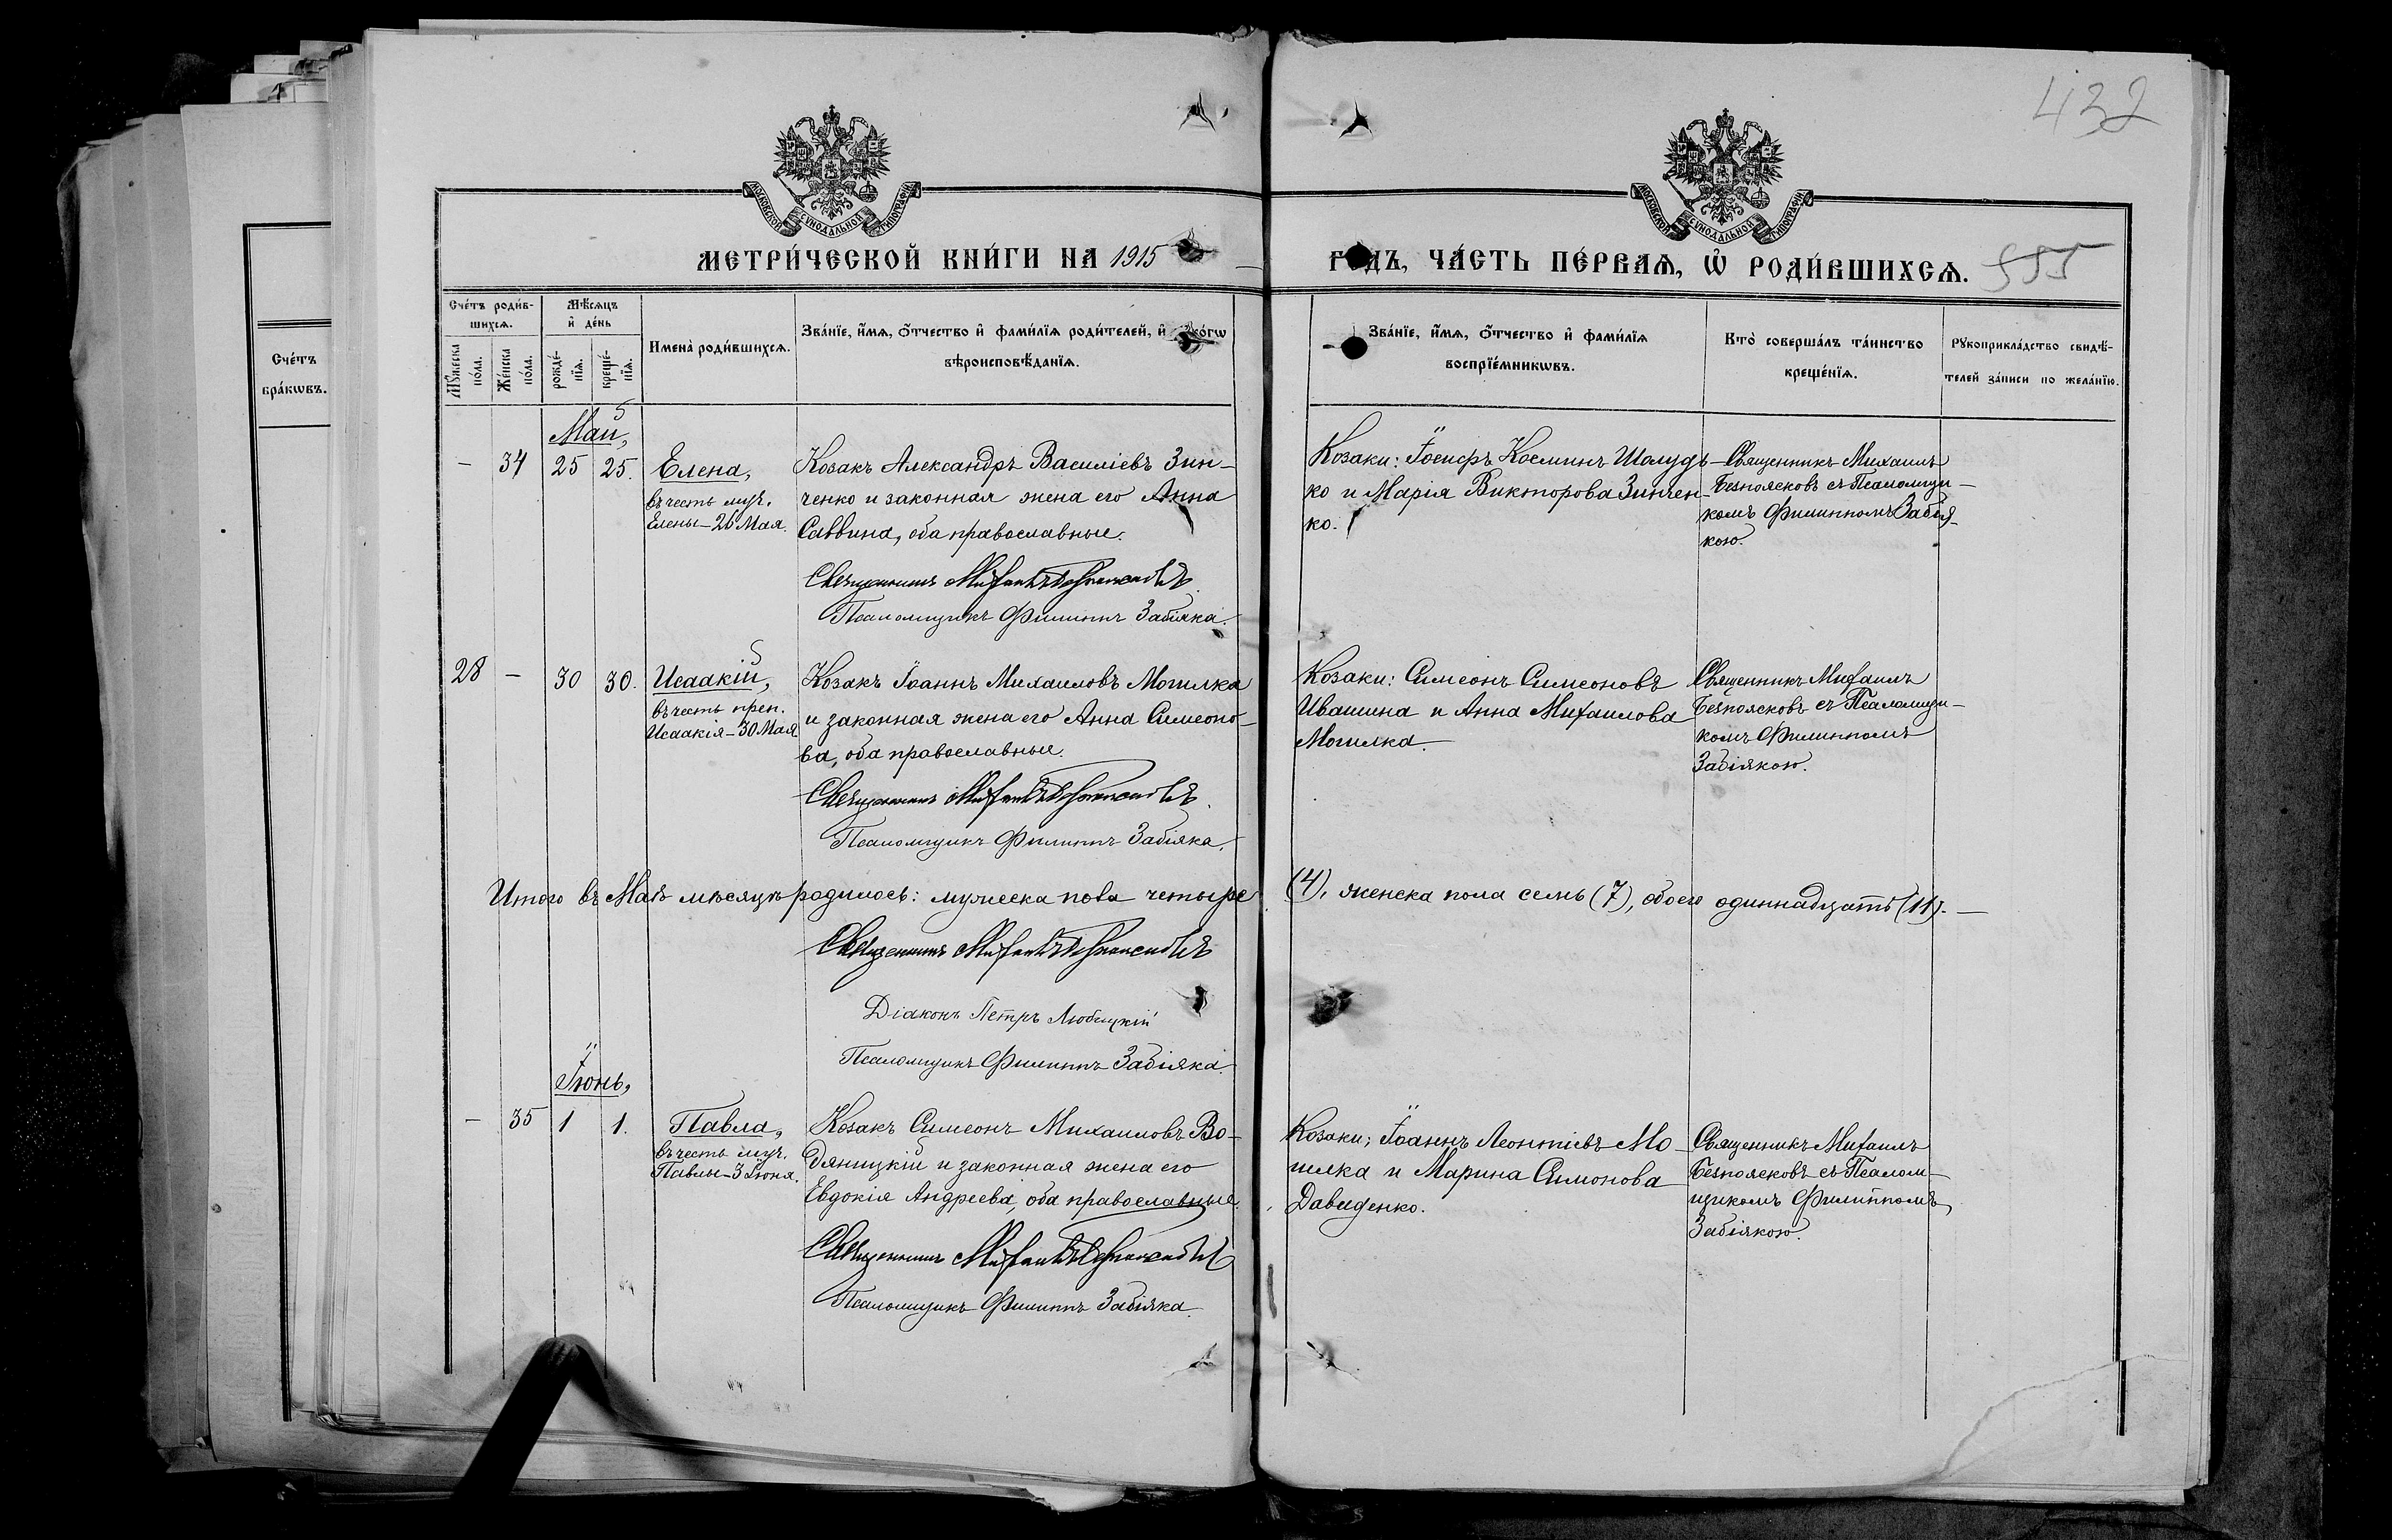 432
МОСКОВСКОЙ СѴНОДАЛЬНОЙ ТИПОГРАФІИ
МОСКОВСКОЙ СѴНОДАЛЬНОЙ ТИПОГРАФІИ
МЕТРИ́ЧЕСКОЙ КНИ́ГИ НА 1915
ГОДЪ, ЧА́СТЬ ПЕ́РВАѦ, Ѡ҆ РОДИ́ВШИХСѦ.
555
Сче́тъ
бра́кѡвъ.
Сче́тъ роди́в-
шихсѧ.
Мѣ́сѧцъ
и҆ де́нь
Мꙋ́жеска
по́ла.
Же́нска
по́ла.
рожде́-
нїѧ.
креще́-
нїѧ.
Имена̀ роди́вшихсѧ.
Зва́нїе, и҆́мѧ, ѻ҆́тчество и҆ фами́лїѧ роди́телей, и҆ како́гѡ
вѣроисповѣ́данїѧ.
Зва́нїе, и҆́мѧ, ѻ҆́тчество и҆ фами́лїѧ
воспрїе́мникѡвъ.
Кто̀ соверша́лъ та́инство
креще́нїѧ.
Рꙋкоприкла́дство свидѣ́-
телей за́писи по жела́нїю.
Май,
— 34 25 25. Елена,
въ честь муч.
Елены — 26 Мая.
Козакъ Александръ Василіевъ Зин-
ченко и законная жена его Анна
Саввина, оба православные.
Священникъ Михаилъ Безпоясковъ
Псаломщикъ Филиппъ Забіяка.
Козаки: Іосифъ Косминъ Шолудь-
ко и Марія Викторова Зинчен-
ко.
Священникъ Михаилъ
Безпоясковъ съ Псаломщи-
комъ Филиппомъ Забія-
кою.
28 — 30 30. Исаакій,
въ честь преп.
Исаакія — 30 Мая
Козакъ Іоаннъ Михаиловъ Могилка
и законная жена его Анна Симеоно-
ва, оба православные.
Священникъ Михаилъ Безпоясковъ.
Псаломщикъ Филиппъ Забіяка.
Козаки: Симеонъ Симеоновъ
Ивашина и Анна Михаилова
Могилка.
Священникъ Михаилъ
Безпоясковъ съ Псаломщи-
комъ Филиппомъ
Забіякою.
Итого въ Маѣ мѣсяцѣ родилось: мужеска пола четыре (4), женска пола семь (7), обоего одиннадцать (11). —
Священникъ Михаилъ Безпоясковъ
Діаконъ Петръ Любицкій
Псаломщикъ Филиппъ Забіяка.
Іюнь,
— 35 1 1. Павла,
въ честь муч.
Павлы — 3 Іюня.
Козакъ Симеонъ Михаиловъ Во-
дяницкій и законная жена его
Евдокія Андреева, оба православные.
Священникъ Михаилъ Безпоясковъ
Псаломщикъ Филиппъ Забіяка.
Козаки; Іоаннъ Леонтіевъ Мо-
гилка и Марина Симонова
Давиденко.
Священникъ Михаилъ
Безпоясковъ съ Псалом-
щикомъ Филиппомъ
Забіякою.